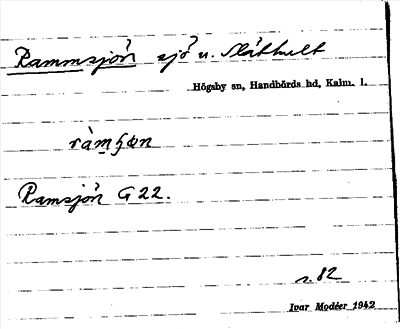 Rammsjön sjö n. Slåthult
Högsby sn, Handbörds hd, Kalm. l.
ràmʃøn
Ramsjön G 22.
s. 82
Ivar Modéer 1942